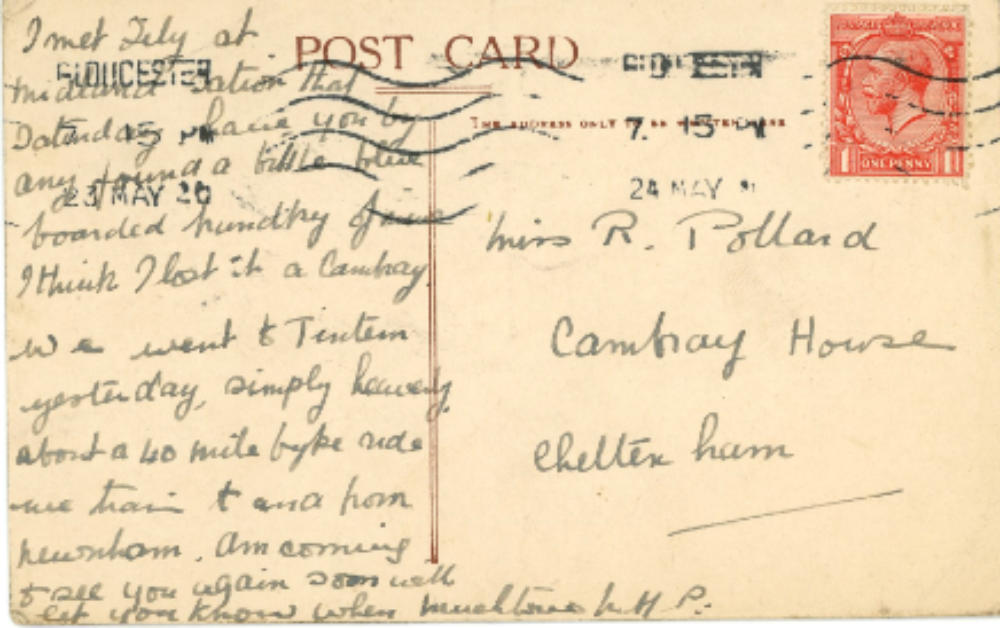 I met Tily at
Midland Station that
Saturday, have you by
any found a little blue
boarded laundry
I think I lost it a Cambray.
We went to Tintern
yesterday, simply heavenly,
about a 40 mile byke ride
we train t and from
newnham. Am coming
to see you again soon will
let you know when much love L. H. P.
POST CARD
THE ADDRESS ONLY TO BE WRITTEN HERE
GLOUCESTER
7. 15 PM
23 MAY 20
GLOUCESTER
7. 15 PM
24 MAY
1 ONE PENNY 1
Miss R. Pollard
Cambray House
Cheltenham